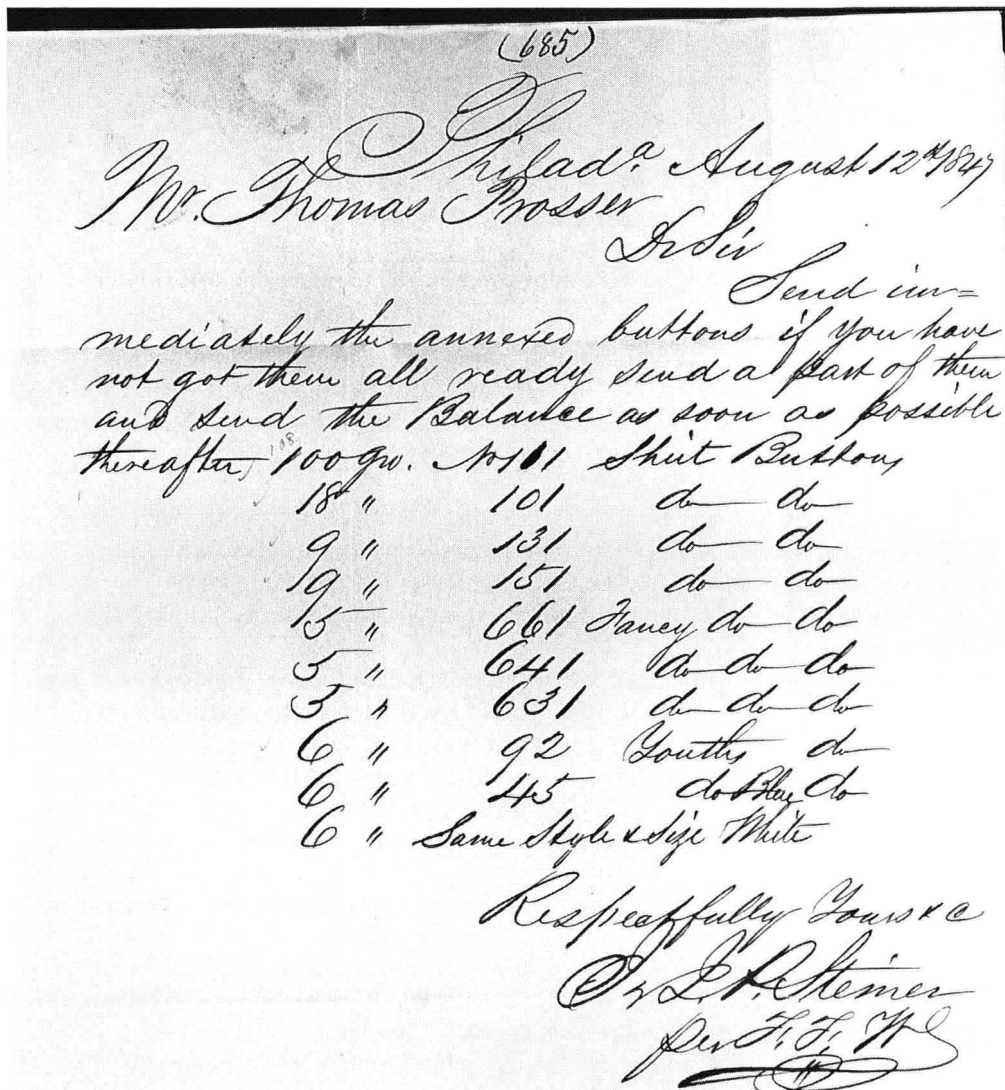 (685)
Philad.a August 12th 1847
Mr. Thomas Prosser
Dr Sir
Send im=
mediately the annexed buttons if you have
not got them all ready send a part of them
and send the Balance as soon as possible
thereafter, 108 100 gro. No 101 Shirt Buttons
18 " 101 do do
9 " 131 do do
9 " 151 do do
5 " 661 Fancy do do
5 " 641 do do do
5 " 631 do do do
6 " 92 Youths do
6 " 45 do Blue do
6 " Same Style & Size White
Respectfully Yours &c
Steiner
per F. F.